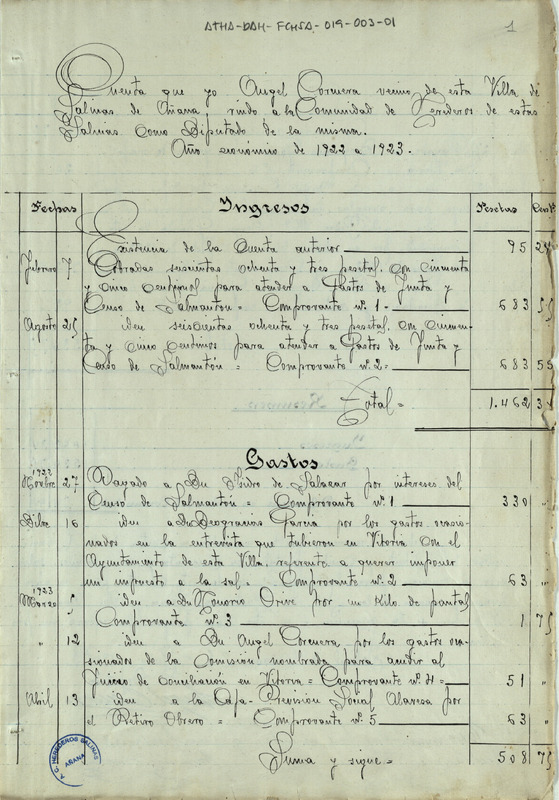 ATHA-DAH-FCHSA-019-003-01
1
Cuenta que yo Angel Corcuera vecino de esta Villa de
Salinas de Añana rindo a la Comunidad de Herederos de estas
Salinas como Diputado de la misma.
Año económico de 1922 a 1923.
Fechas Ingresos Pesetas Cent.
Existencia de la Cuenta anterior 95 24
Febrero 7 Cobradas seiscientas ochenta y tres pesetas con cincuenta
y cinco centimos para atender a Gastos de Junta y
Censo de Salmantón = Comprovante nº 1 683 55
Agosto 25 iden seiscientas ochenta y tres pesetas, con cincuen-
ta y cinco centimos para atender a Gastos de Junta y
Censo de Salmantón = Comprovante nº 2 683 55
Total = 1.462 34
Gastos
1922
Novbre 27 Pagado a Dn Isidro de Salazar por intereses del
Censo de Salmantón = Comprovante nº 1 330 "
Dibre 16 iden a Dn Deogracias Garcia por los gastos ocasio-
nados en la entrevista que tubieron en Vitoria con el
Ayuntamiento de esta Villa, referente a querer imponer
un impuesto a la sal = Comprovante nº 2 63 "
1923
Marzo 5 iden a Dn Honorio Orive por un kilo de puntas
Comprovante nº 3 1 75
" 12 iden a Dn Angel Corcuera por los gastos oca-
sionados de la Comisión nombrada para acudir al
Juicio de conciliación en Vitoria = Comprovante nº 4 = 51 "
Abril 13 iden a la Caja-Prevision Social Alavesa por
el Retiro Obrero = Comprovante nº 5 63 "
Suma y sigue = 508 75
HEREDEROS SALINAS
AÑANA